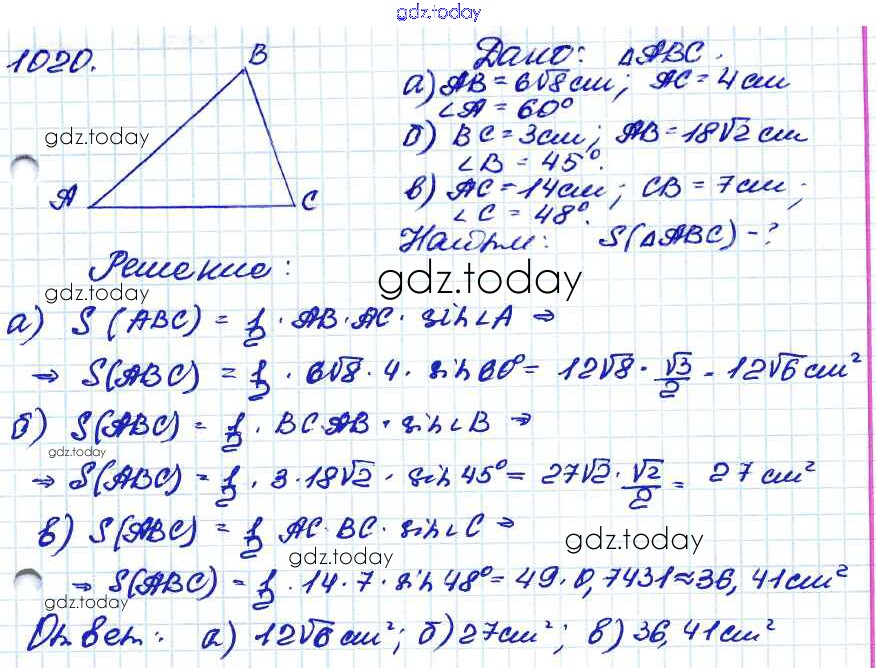 gdz.today
1020.
B
A
C
Дано: △ABC.
а) AB = 6√8 см; AC = 4 см
∠A = 60°
б) BC = 3 см; AB = 18√2 см
∠B = 45°.
в) AC = 14 см; CB = 7 см;
∠C = 48°.
Найти: S(△ABC) - ?
gdz.today
Решение:
gdz.today
gdz.today
а) S(ABC) = 1/2 · AB · AC · sin∠A ⇒
⇒ S(ABC) = 1/2 · 6√8 · 4 · sin 60° = 12√8 · √3/2 = 12√6 см²
б) S(ABC) = 1/2 · BC · AB · sin∠B ⇒
gdz.today
⇒ S(ABC) = 1/2 · 3 · 18√2 · sin 45° = 27√2 · √2/2 = 27 см²
в) S(ABC) = 1/2 AC · BC · sin∠C ⇒
gdz.today
gdz.today
⇒ S(ABC) = 1/2 · 14 · 7 · sin 48° = 49 · 0,7431 ≈ 36,41 см²
gdz.today
Ответ: а) 12√6 см²; б) 27 см²; в) 36,41 см²